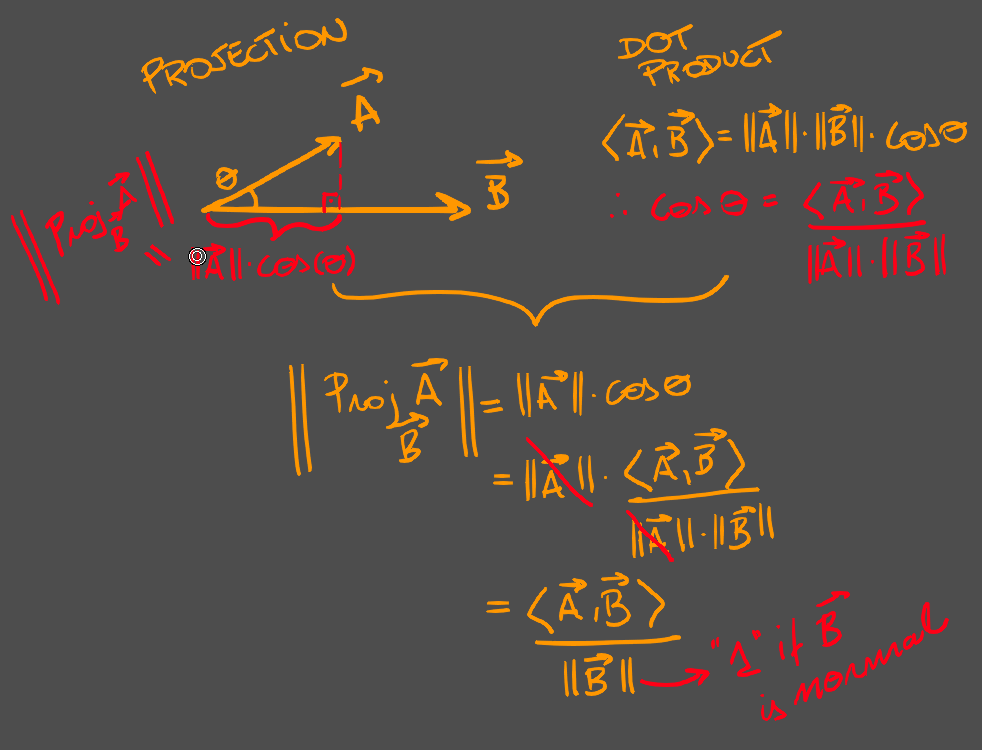 PROJECTION
A⃗
θ
B⃗
‖Proj_B⃗ A⃗‖
= ‖A⃗‖·cos(θ)
DOT
PRODUCT
⟨A⃗,B⃗⟩=‖A⃗‖·‖B⃗‖·cosθ
∴ cosθ = ⟨A⃗,B⃗⟩/‖A⃗‖·‖B⃗‖
‖Proj_B⃗ A⃗‖ = ‖A⃗‖·cosθ
= ‖A⃗‖·⟨A⃗,B⃗⟩/‖A⃗‖·‖B⃗‖
= ⟨A⃗,B⃗⟩/‖B⃗‖
"1" if B⃗
is normal